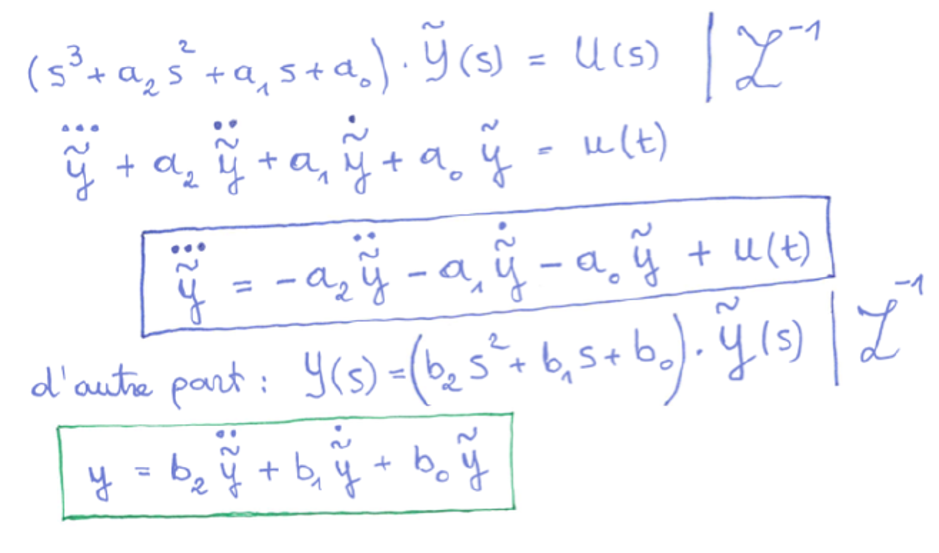 (s³ + a₂ s² + a₁ s + a₀) · Ỹ(s) = U(s) | ℒ⁻¹
ỹ⃛ + a₂ ỹ̈ + a₁ ỹ̇ + a₀ ỹ = u(t)
ỹ⃛ = - a₂ ỹ̈ - a₁ ỹ̇ - a₀ ỹ + u(t)
d'autre part : Y(s) = (b₂ s² + b₁ s + b₀) · Ỹ(s) | ℒ⁻¹
y = b₂ ỹ̈ + b₁ ỹ̇ + b₀ ỹ